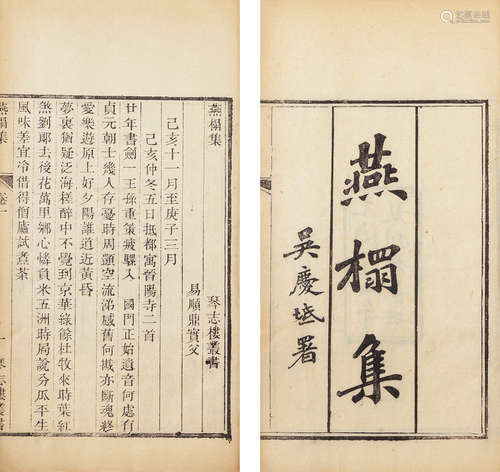 燕榻集
吳慶坻署
燕榻集 琴志樓叢書
易順鼎實父
己亥十一月至庚子三月
己亥仲冬五日抵都寓晉陽寺二首
廿年書劍一王孫重策疲騾入 國門正始遺音何處有
貞元朝士幾人存憂時周顗空流涕感舊何戡亦斷魂終
愛樂遊原上好夕陽誰道近黃昏
夢裏猶疑泛海槎醉中不覺到京華綠餘杜牧來時葉紅
煞劉郎去後花萬里鄉心憐負米五洲時局說分瓜平生
風味差宜冷借得僧廬試煮茶
燕榻集 卷一 一 琴志樓叢書